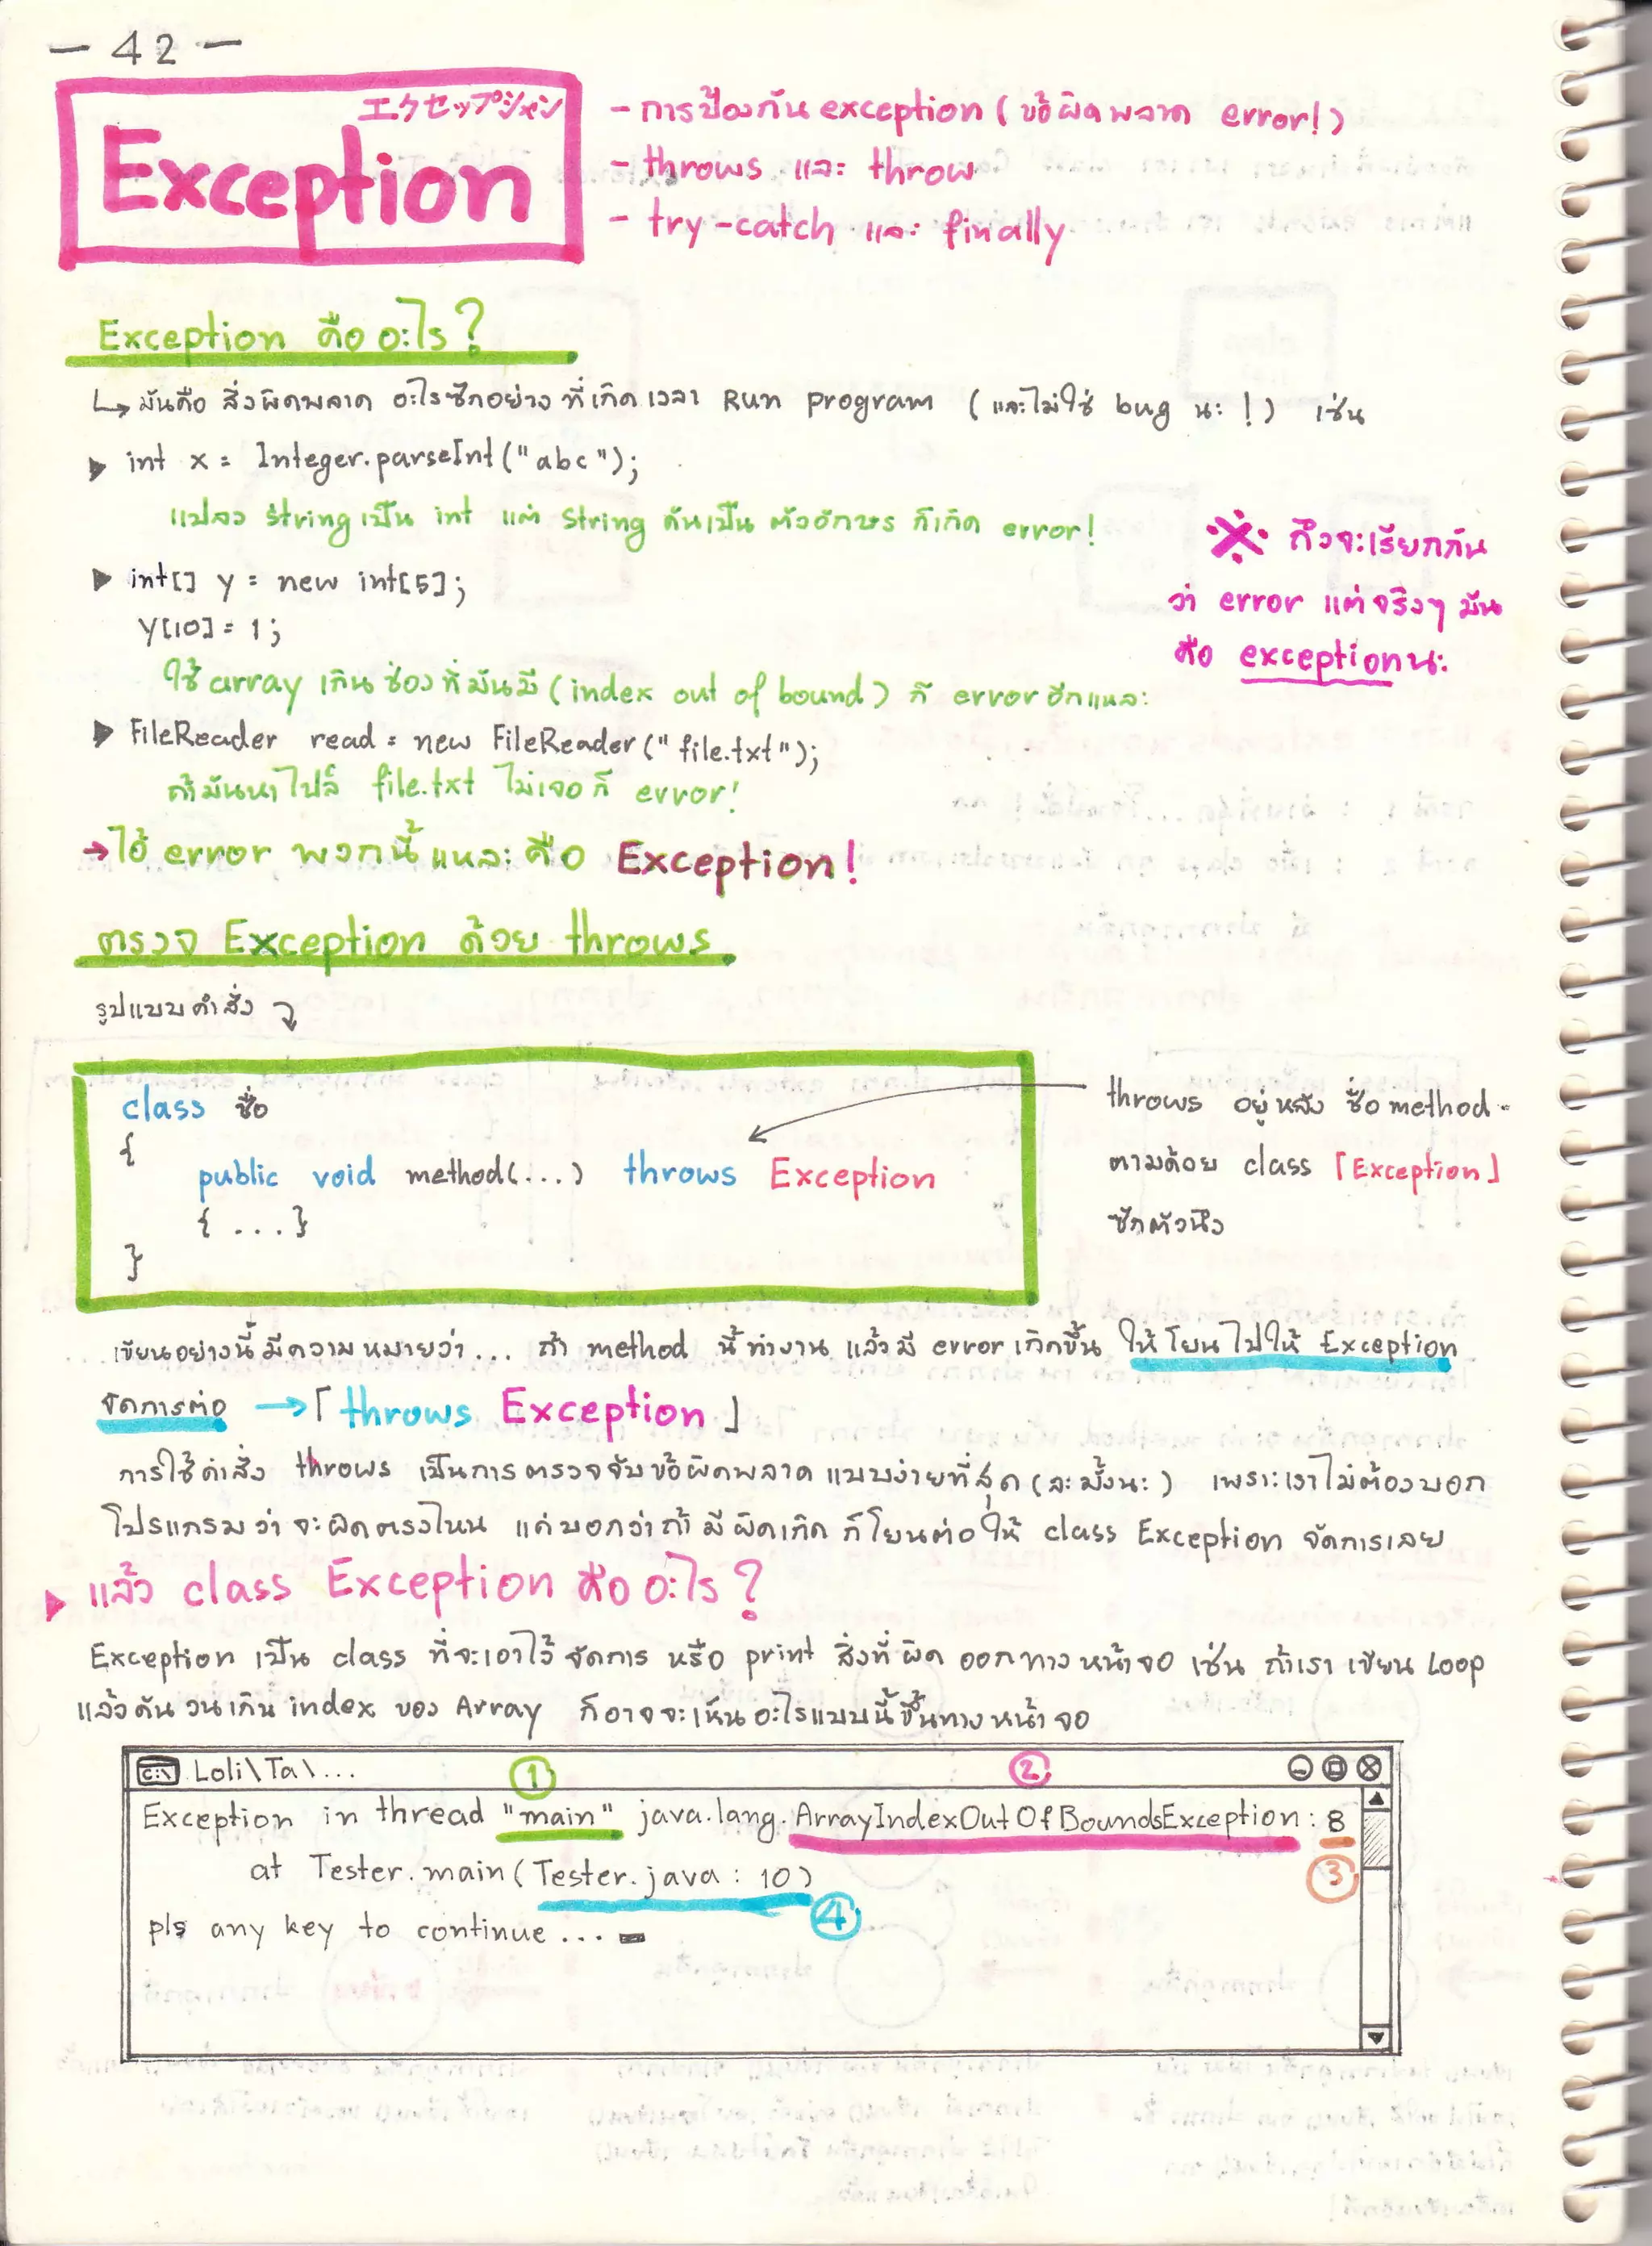 - 42 -
エクセップション
Exception
- การป้องกัน exception (ข้อผิดพลาด error!)
- throws และ throw
- try-catch และ finally
Exception คืออะไร?
↳ มันคือ สิ่งผิดพลาด อะไรซักอย่าง ที่เกิดเวลา Run program (และไม่ใช่ bug นะ!) เช่น
▶ int x = Integer.parseInt("abc");
แปลง String เป็น int แต่ String ดันเป็น ตัวอักษร ก็เกิด error!
▶ int[] y = new int[5];
y[10] = 1;
ใช้ array เกินช่องที่มันมี (index out of bound) ก็ error อีกแหละ
▶ FileReader read = new FileReader("file.txt");
ถ้ามันหาไฟล์ file.txt ไม่เจอก็ error!
※ ถึงจะเรียกกัน
ว่า error แต่จริงๆ มัน
คือ exception นะ
→ ไอ้ error พวกนี้แหละ คือ Exception!
ตรวจ Exception ด้วย throws
รูปแบบคำสั่ง
class ชื่อ
{
public void method(...) throws Exception
{ ... }
}
throws อยู่หลัง ชื่อ method
ตามด้วย class 「Exception」
ซักตัวนึง
เขียนอย่างนี้มีความหมายว่า... ถ้า method นี้ทำงาน แล้วมี error เกิดขึ้น ให้โยนไปให้ Exception
จัดการต่อ → 「throws Exception」
การใช้คำสั่ง throws เป็นการตรวจจับข้อผิดพลาดแบบง่ายที่สุด (ละมั้งนะ) เพราะเราไม่ต้องบอก
โปรแกรมว่าจะผิดตรงไหน แค่บอกว่าถ้ามีผิดเกิด ก็โยนต่อให้ class Exception จัดการเลย
▶ แล้ว class Exception คืออะไร?
Exception เป็น class ที่จะเอาไว้ จัดการ หรือ print สิ่งที่ผิด ออกทางหน้าจอ เช่น ถ้าเรา เขียน Loop
แล้วดันวนเกิน index ของ Array ก็อาจจะเห็นอะไรแบบนี้ขึ้นทางหน้าจอ
C:\ Loli\Ta\...
① ②
Exception in thread "main" java.lang.ArrayIndexOutOfBoundsException : 8
③
at Tester.main(Tester.java : 10)
④
pls any key to continue ...